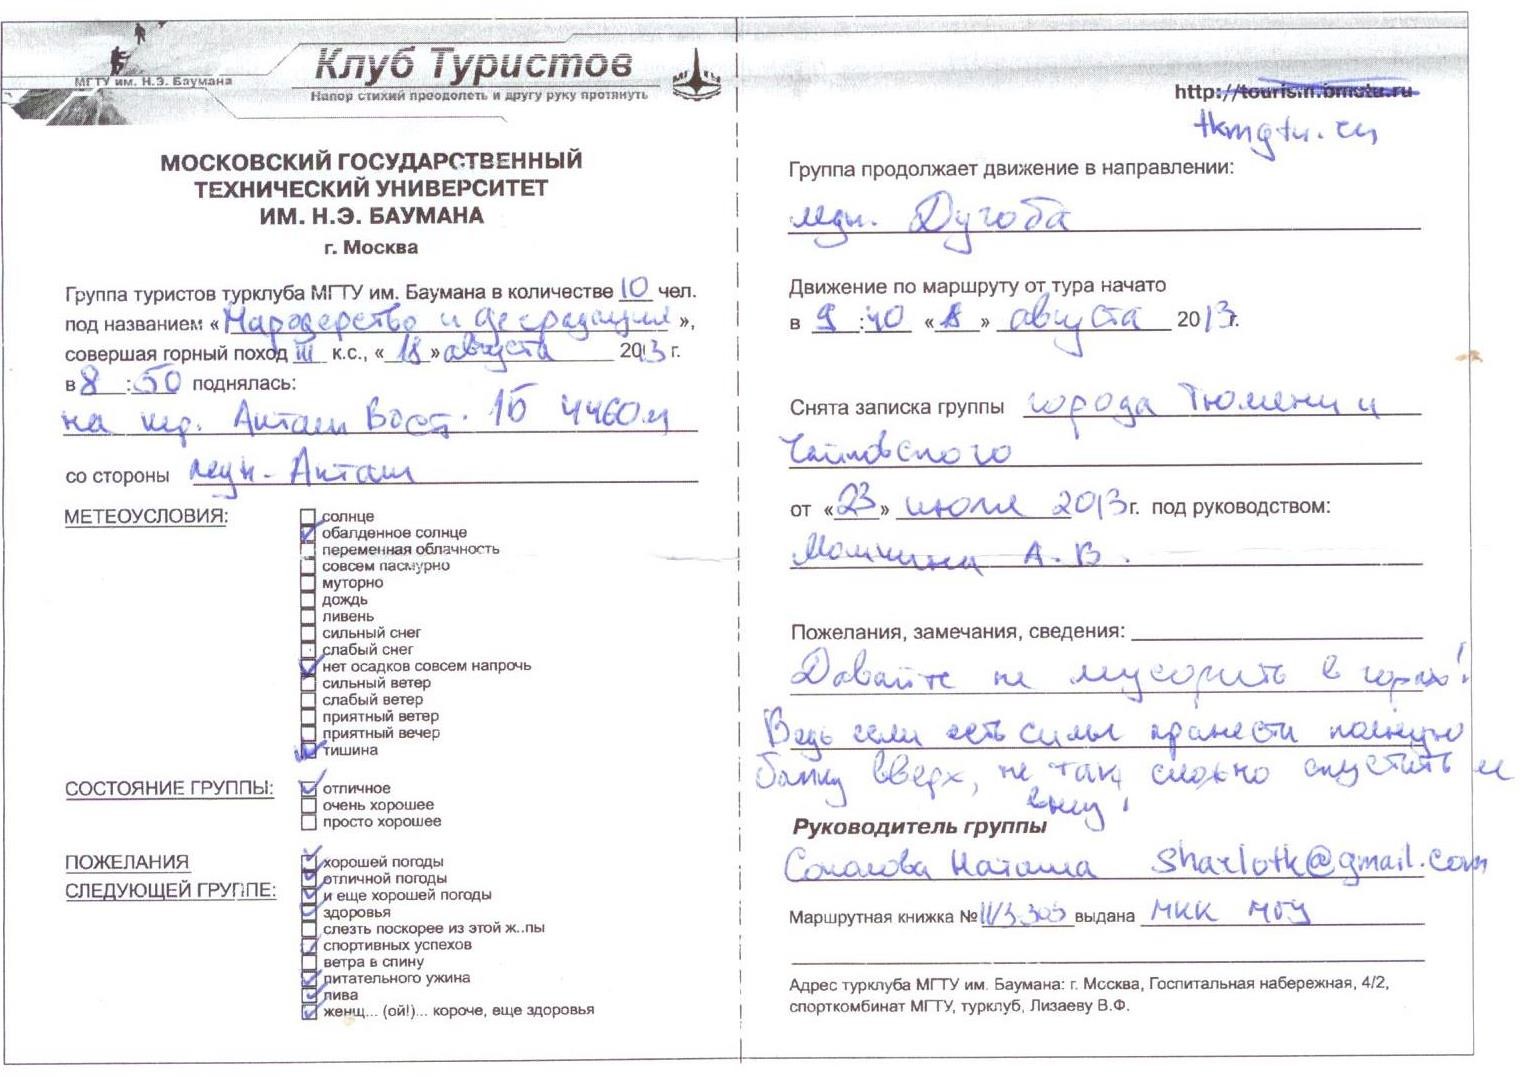 МГТУ им. Н.Э. Баумана
Клуб Туристов
Напор стихий преодолеть и другу руку протянуть
МГТУ
МОСКОВСКИЙ ГОСУДАРСТВЕННЫЙ
ТЕХНИЧЕСКИЙ УНИВЕРСИТЕТ
ИМ. Н.Э. БАУМАНА
г. Москва
Группа туристов турклуба МГТУ им. Баумана в количестве 10 чел.
под названием «Мародерство и деградация»,
совершая горный поход III к.с., «18» августа 2013 г.
в 8:50 поднялась:
на пер. Акташ Вост. 1Б 4460м
со стороны ледн. Акташ
МЕТЕОУСЛОВИЯ:
солнце
обалденное солнце
переменная облачность
совсем пасмурно
муторно
дождь
ливень
сильный снег
слабый снег
нет осадков совсем напрочь
сильный ветер
слабый ветер
приятный ветер
приятный вечер
тишина
СОСТОЯНИЕ ГРУППЫ:
отличное
очень хорошее
просто хорошее
ПОЖЕЛАНИЯ
СЛЕДУЮЩЕЙ ГРУППЕ:
хорошей погоды
отличной погоды
и еще хорошей погоды
здоровья
слезть поскорее из этой ж..пы
спортивных успехов
ветра в спину
питательного ужина
пива
женщ... (ой!)... короче, еще здоровья
http://tourism.bmstu.ru
tkmgtu.ru
Группа продолжает движение в направлении:
ледн. Дугоба
Движение по маршруту от тура начато
в 9:40 «18» августа 2013г.
Снята записка группы города Тюмени и
Чайковского
от «23» июля 2013г. под руководством:
А.В.
Пожелания, замечания, сведения:
Давайте не мусорить в горах!
Ведь если есть силы принести полную
банку вверх, не так сложно спустить и
вниз!
Руководитель группы
Соколова Наташа sharlotk@gmail.com
Маршрутная книжка № выдана МКК МГУ
Адрес турклуба МГТУ им. Баумана: г. Москва, Госпитальная набережная, 4/2,
спорткомбинат МГТУ, турклуб, Лизаеву В.Ф.